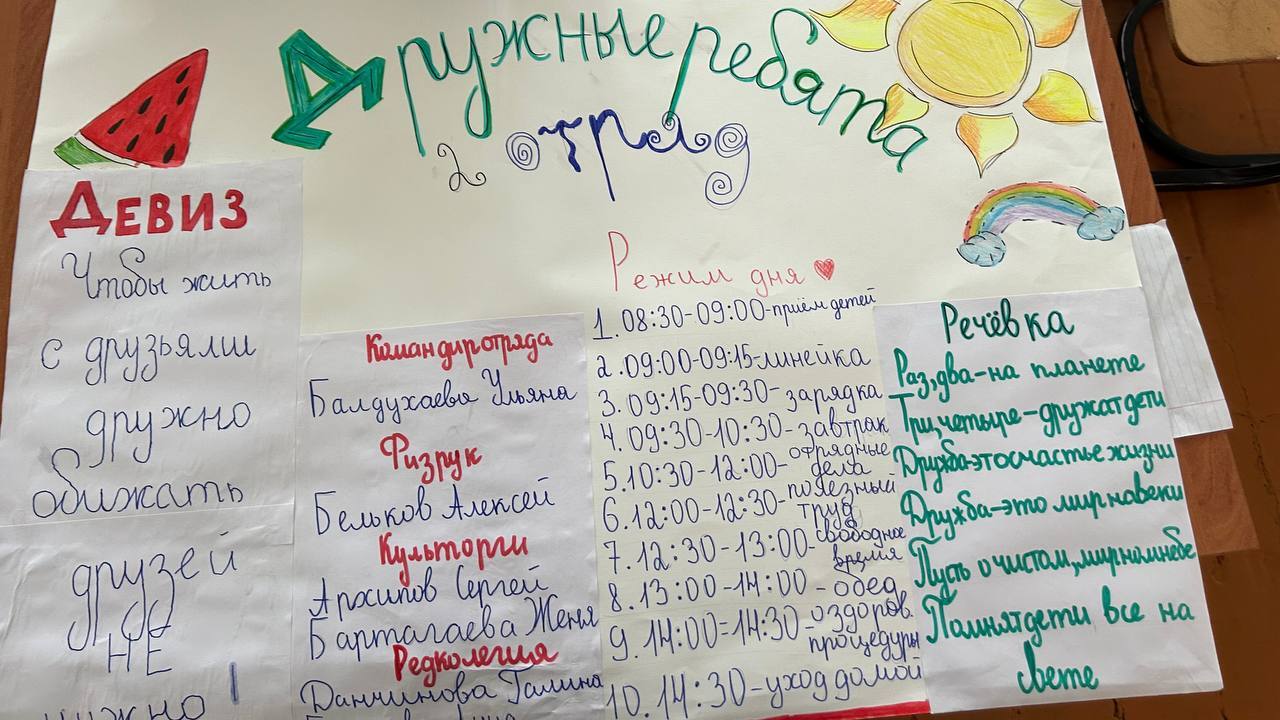 Дружные ребята
2 отряд
ДЕВИЗ
Чтобы жить
с друзьями
дружно
обижать
друзей
НЕ
нужно!
Командир отряда
Балдухаева Ульяна
Физрук
Бельков Алексей
Культорги
Архипов Сергей
Бартагаева Женя
Редколегия
Данчинова Галина
Режим дня
1. 08:30-09:00-приём детей
2. 09:00-09:15-линейка
3. 09:15-09:30-зарядка
4. 09:30-10:30-завтрак
5. 10:30-12:00-отрядные
дела
6. 12:00-12:30-полезный
труд
7. 12:30-13:00-свободное
время
8. 13:00-14:00-обед
9. 14:00=14:30-оздоров.
процедуры
10. 14:30-уход домой
Речёвка
Раз,два-на планете
Три,четыре-дружат дети
Дружба-это счастье жизни
Дружба-это мир навеки
Пусть о чистом,мирном небе
Помнят дети все на
свете